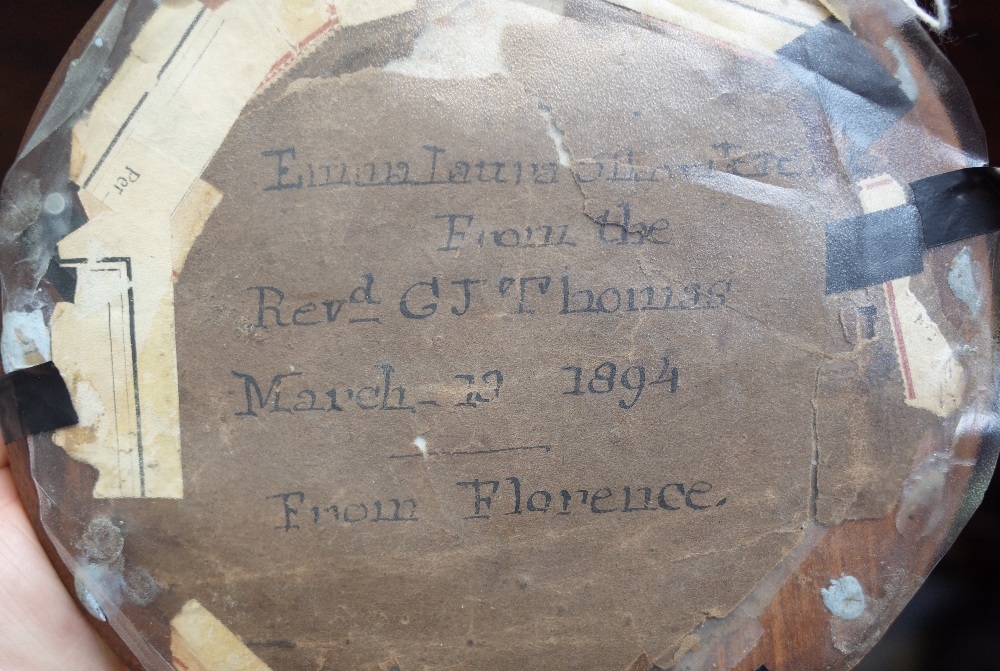 Per-
Emma Laura
From the
Revd G J Thomas
March - 1894
From Florence.